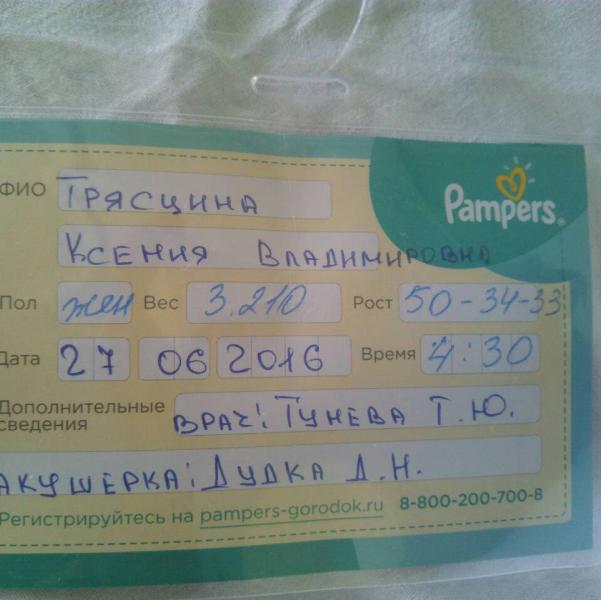 Pampers
ФИО Трясцина
Ксения Владимировна
Пол жен Вес 3.210 Рост 50-34-33
Дата 27 06 2016 Время 4:30
Дополнительные сведения врач: Тунева Т.Ю.
акушерка: Дудка Д.Н.
Регистрируйтесь на pampers-gorodok.ru 8-800-200-700-8